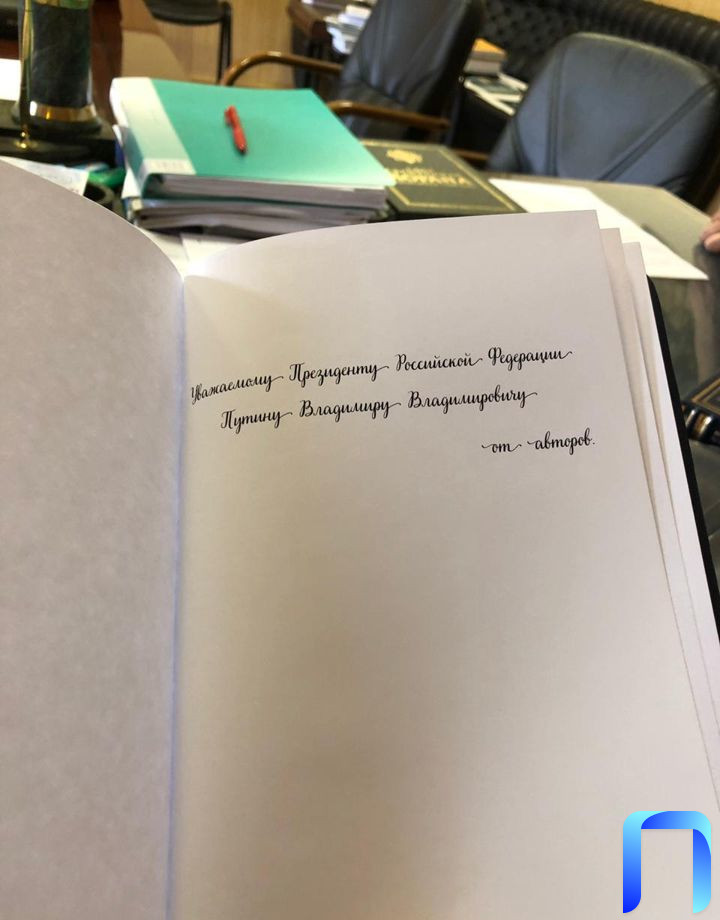 Уважаемому Президенту Российской Федерации
Путину Владимиру Владимировичу
от авторов.
П